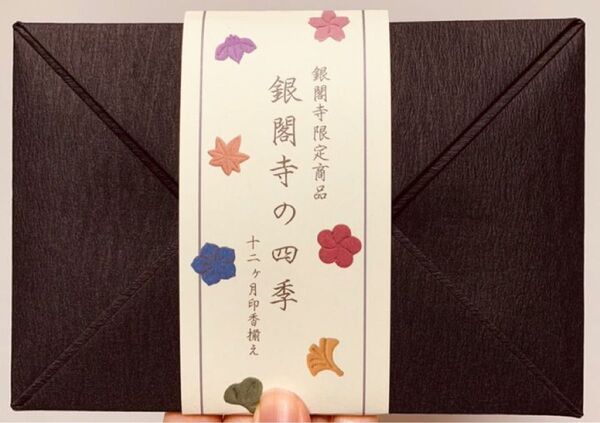 銀閣寺限定商品
銀閣寺の四季
十二ヶ月印香揃え